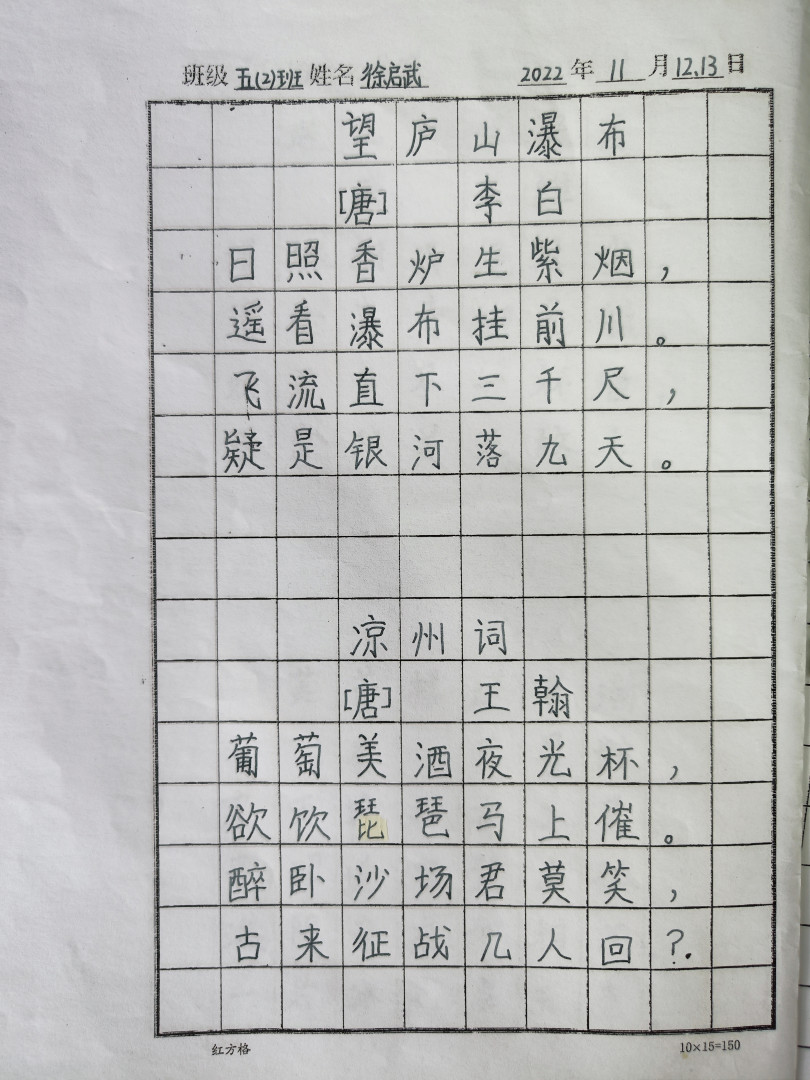 班级 五(2)班 姓名 徐启武 2022 年 11 月 12,13 日
望庐山瀑布
[唐] 李白
日照香炉生紫烟，
遥看瀑布挂前川。
飞流直下三千尺，
疑是银河落九天。
凉州词
[唐] 王翰
葡萄美酒夜光杯，
欲饮琵琶马上催。
醉卧沙场君莫笑，
古来征战几人回？
红方格 10×15=150